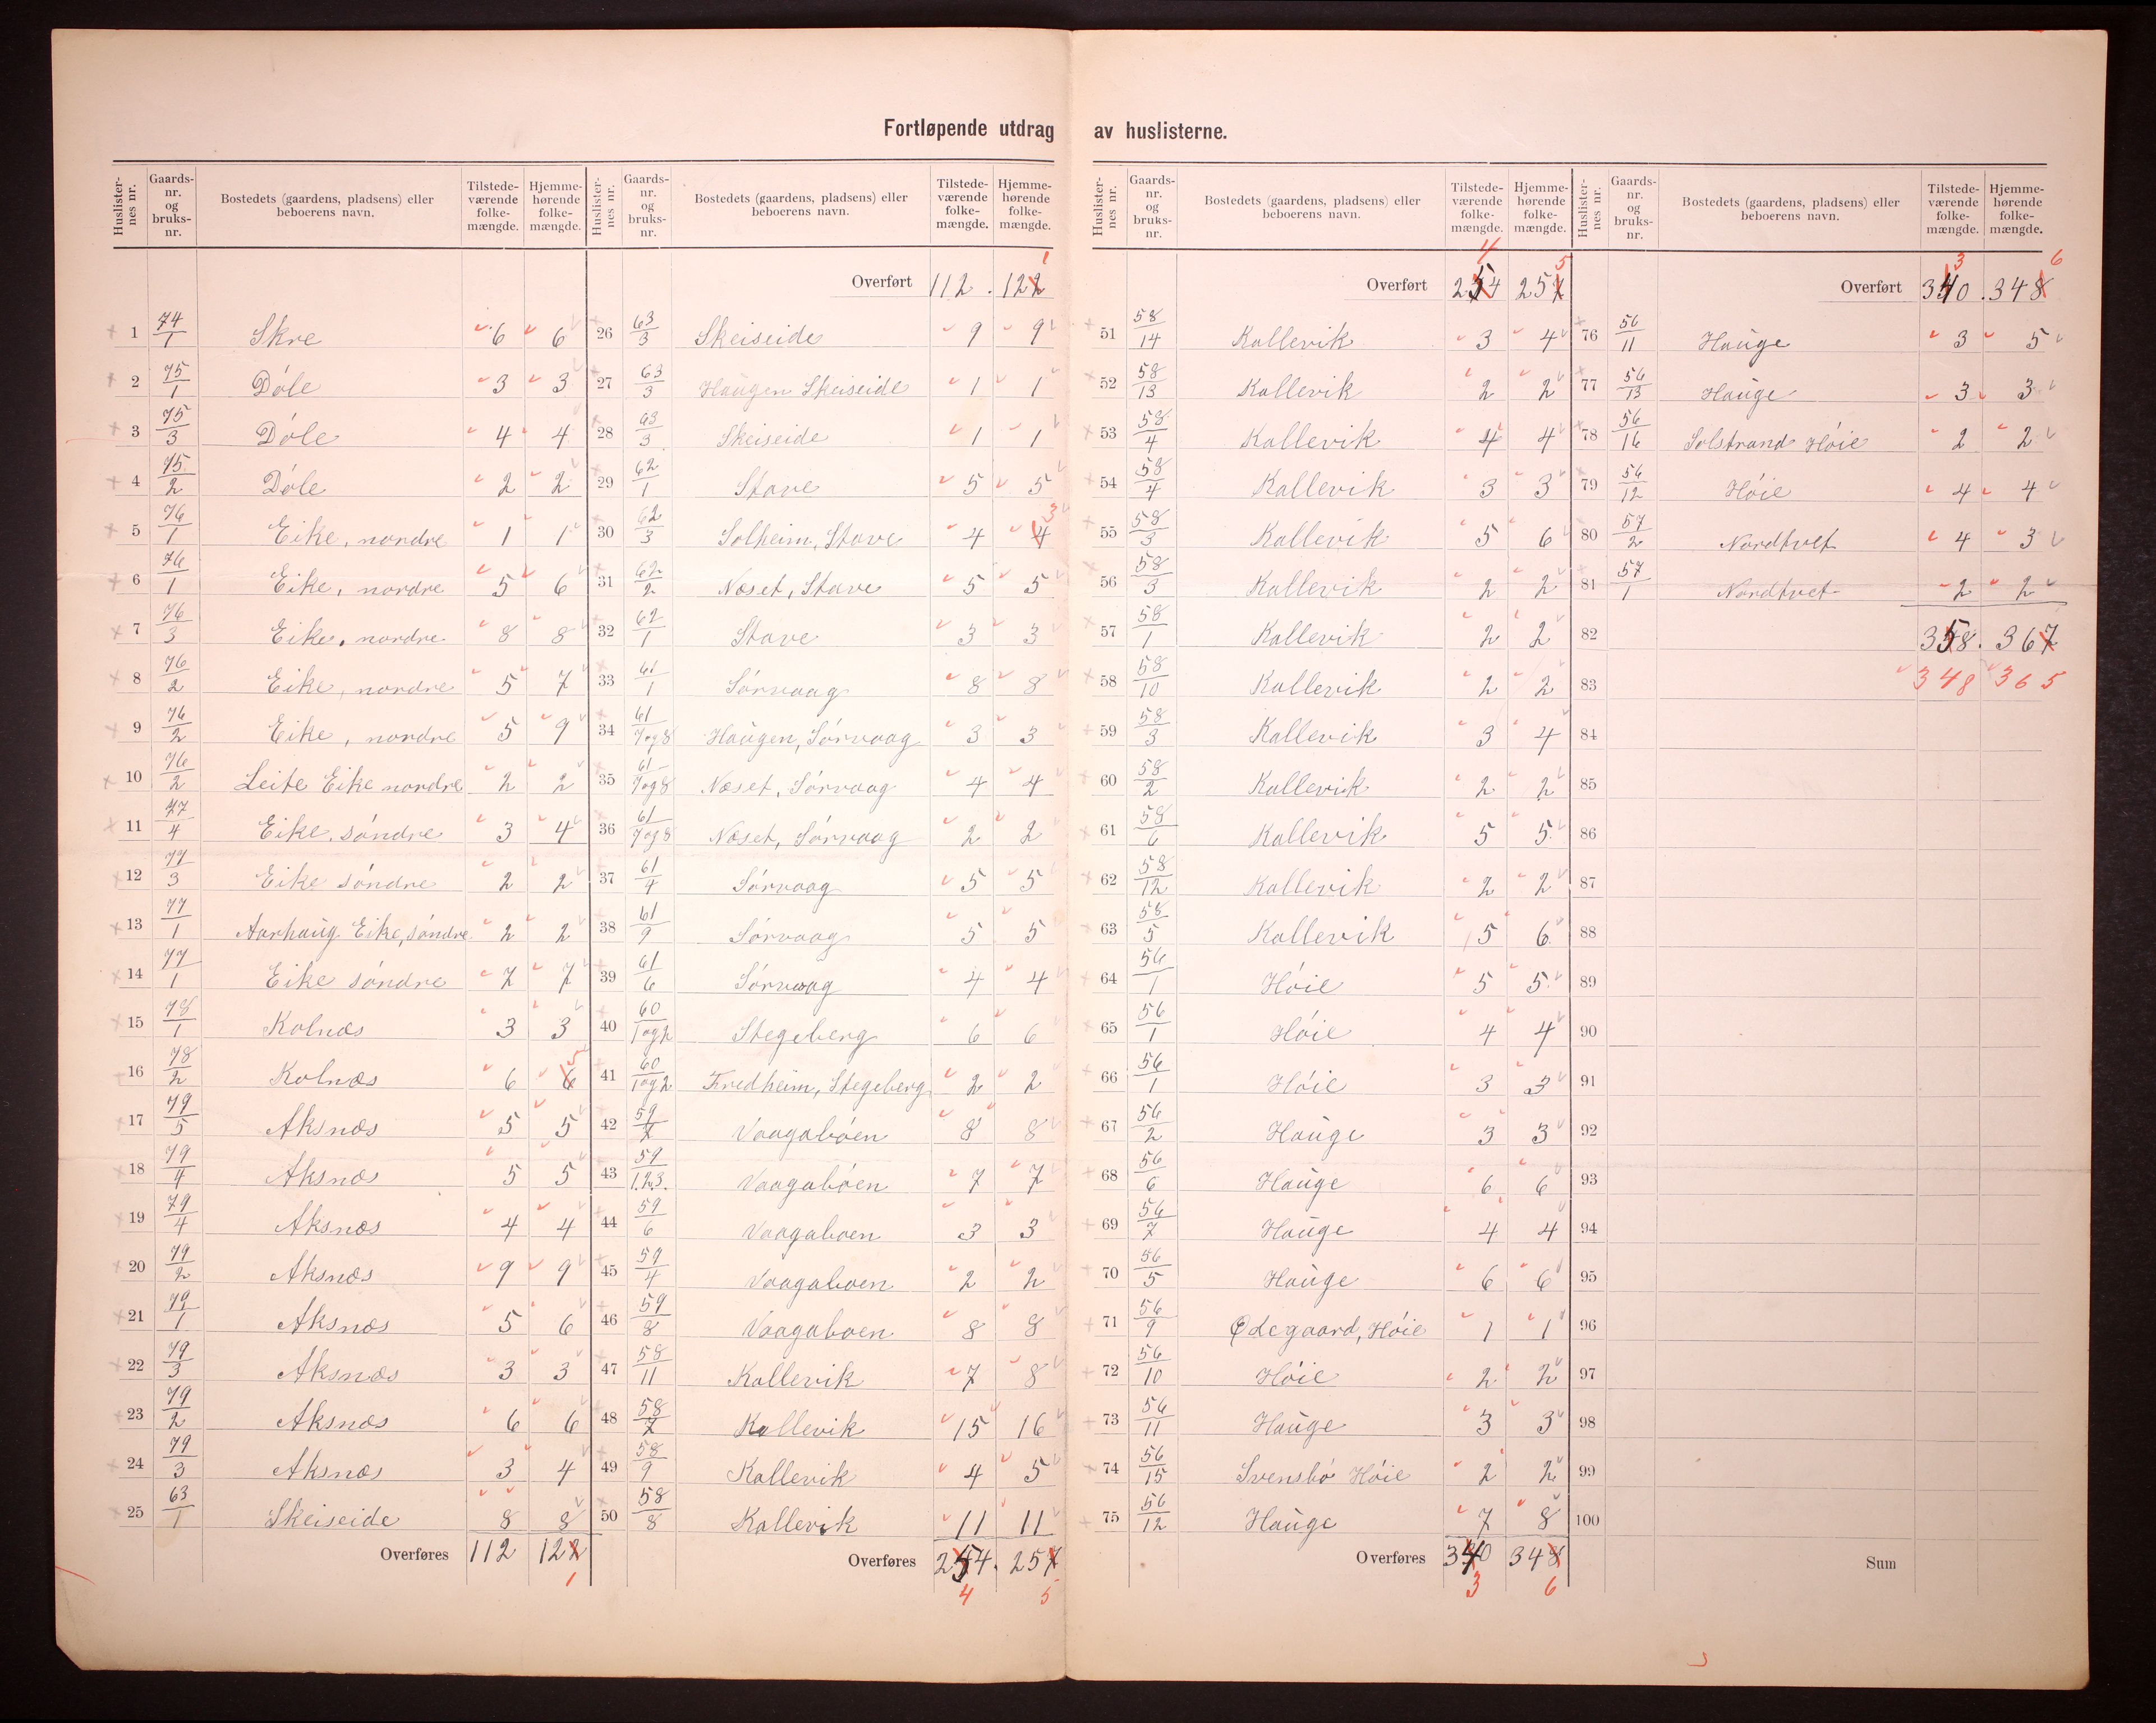 Fortløpende utdrag av huslisterne.
Huslisternes nr. | Gaards-nr. og bruks-nr. | Bostedets (gaardens, pladsens) eller beboerens navn. | Tilstedeværende folkemængde. | Hjemmehørende folkemængde.
1 74/1 Skre 6 6
2 75/1 Dóle 3 3
3 75/3 Dóle 4 4
4 75/2 Dóle 2 2
5 76/1 Eike, nordre 1 1
6 76/1 Eike, nordre 5 6
7 76/3 Eike, nordre 8 8
8 76/2 Eike, nordre 5 7
9 76/2 Eike, nordre 5 9
10 76/2 Leite Eike nordre 2 2
11 77/4 Eike, sóndre 3 4
12 77/3 Eike sóndre 2 2
13 77/1 Aarhaug Eike, sóndre 2 2
14 77/1 Eike sóndre 7 7
15 78/1 Kolnæs 3 3
16 78/2 Kolnæs 6 6 5
17 79/5 Aksnæs 5 5
18 79/4 Aksnæs 5 5
19 79/4 Aksnæs 4 4
20 79/2 Aksnæs 9 9
21 79/1 Aksnæs 5 6
22 79/3 Aksnæs 3 3
23 79/2 Aksnæs 6 6
24 79/3 Aksnæs 3 4
25 63/1 Skeiseide 8 8
Overføres 112 122
1
Huslisternes nr. | Gaards-nr. og bruks-nr. | Bostedets (gaardens, pladsens) eller beboerens navn. | Tilstedeværende folkemængde. | Hjemmehørende folkemængde.
1
Overført 112. 122
26 63/3 Skeiseide 9 9
27 63/3 Haugen Skeiseide 1 1
28 63/3 Skeiseide 1 1
29 62/1 Stave 5 5
30 62/3 Solheim, Stave 4 4 3
31 62/2 Næset, Stave 5 5
32 62/1 Stave 3 3
33 61/1 Sórvaag 8 8
34 61/7og8 Haugen, Sórvaag 3 3
35 61/7og8 Næset, Sórvaag 4 4
36 61/7og8 Næset, Sórvaag 2 2
37 61/4 Sórvaag 5 5
38 61/9 Sórvaag 5 5
39 61/6 Sórvaag 4 4
40 60/1og2 Stegeberg 6 6
41 60/1og2 Fredheim, Stegeberg 2 2
42 59/7 Vaagabóen 8 8
43 59/1.2.3. Vaagabóen 7 7
44 59/6 Vaagaboen 3 3
45 59/4 Vaagaboen 2 2
46 59/8 Vaagaboen 8 8
47 58/11 Kallevik 7 8
48 58/7 Kallevik 15 16
49 58/9 Kallevik 4 5
50 58/8 Kallevik 11 11
Overføres 254. 257
4 5
Huslisternes nr. | Gaards-nr. og bruks-nr. | Bostedets (gaardens, pladsens) eller beboerens navn. | Tilstedeværende folkemængde. | Hjemmehørende folkemængde.
4 5
Overført 254 257
51 58/14 Kallevik 3 4
52 58/13 Kallevik 2 2
53 58/4 Kallevik 4 4
54 58/4 Kallevik 3 3
55 58/3 Kallevik 5 6
56 58/3 Kallevik 2 2
57 58/1 Kallevik 2 2
58 58/10 Kallevik 2 2
59 58/3 Kallevik 3 4
60 58/2 Kallevik 2 2
61 58/6 Kallevik 5 5
62 58/12 Kallevik 2 2
63 58/5 Kallevik 5 6
64 56/1 Hóie 5 5
65 56/1 Hóie 4 4
66 56/1 Hóie 3 3
67 56/2 Hauge 3 3
68 56/6 Hauge 6 6
69 56/7 Hauge 4 4
70 56/5 Hauge 6 6
71 56/9 Ødegaard, Hóie 1 1
72 56/10 Hóie 2 2
73 56/11 Hauge 3 3
74 56/15 Svensbó Hóie 2 2
75 56/12 Hauge 7 8
Overføres 340 348
3 6
Huslisternes nr. | Gaards-nr. og bruks-nr. | Bostedets (gaardens, pladsens) eller beboerens navn. | Tilstedeværende folkemængde. | Hjemmehørende folkemængde.
3 6
Overført 340. 348
76 56/11 Hauge 3 5
77 56/13 Hauge 3 3
78 56/16 Solstrand Hóie 2 2
79 56/12 Hóie 4 4
80 57/2 Nordtvet 4 3
81 57/1 Nordtvet 2 2
82 358. 367
83 348 365
84
85
86
87
88
89
90
91
92
93
94
95
96
97
98
99
100
Sum